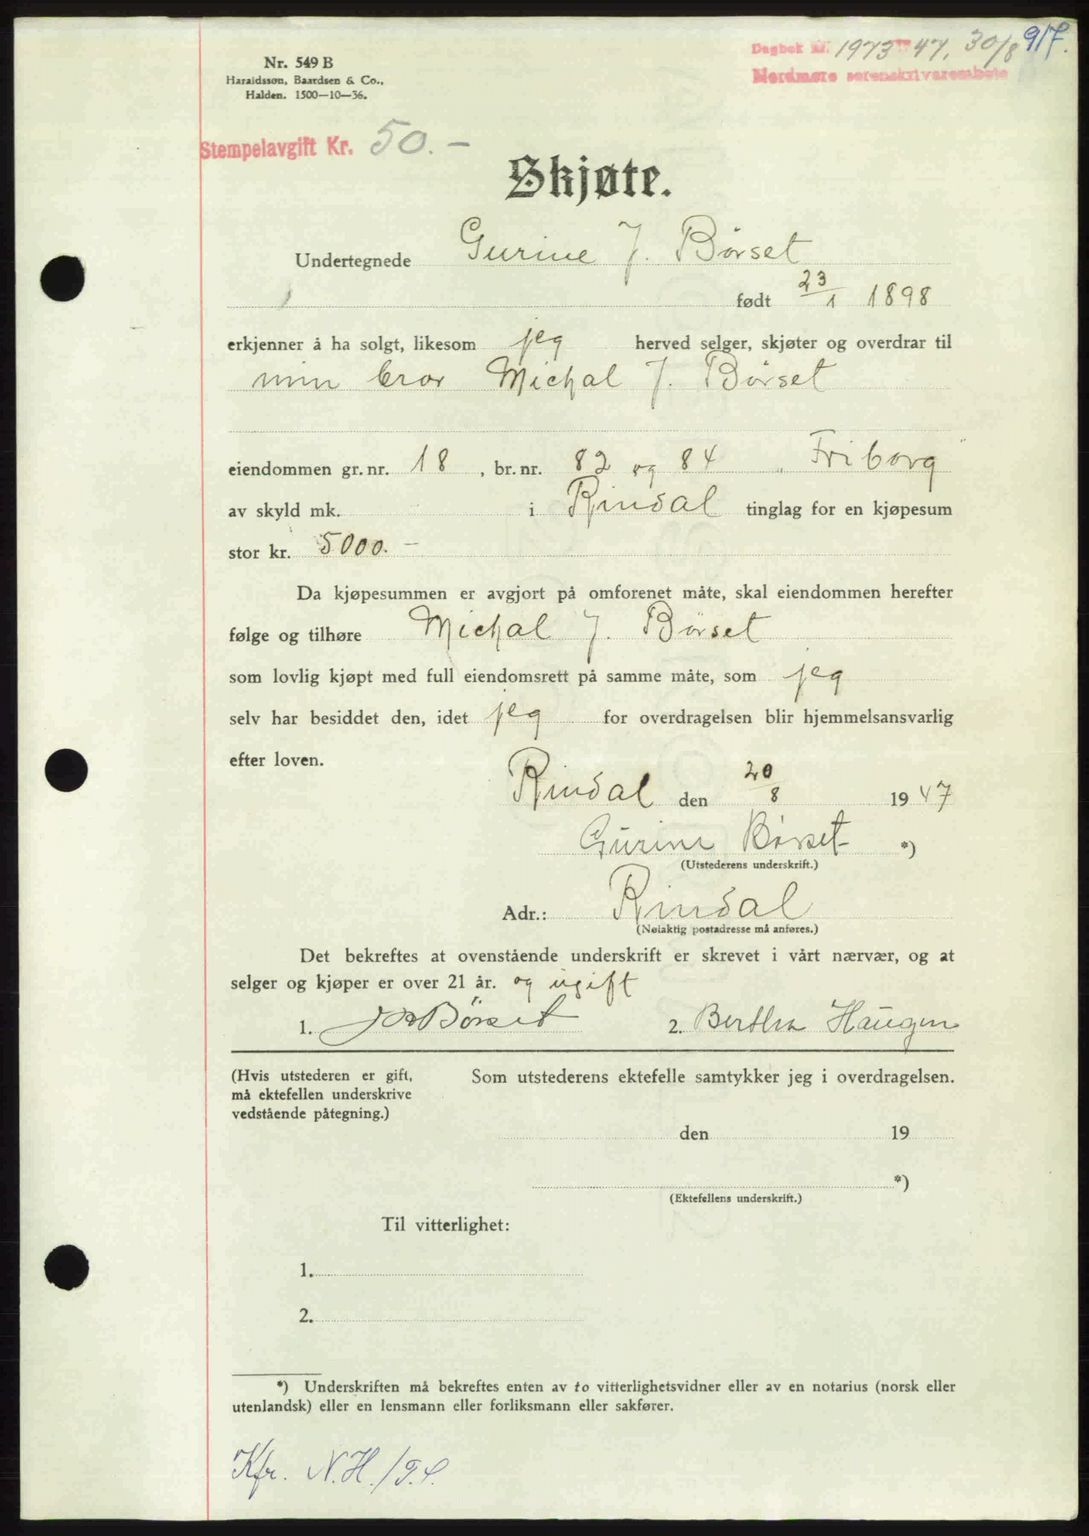 917.
Dagbok nr. 1973 47. 30/8
Nordmøre sorenskrivarembete
Nr. 549 B
Haraldsson, Baardsen & Co.,
Halden. 1500—10—36.
Stempelavgift Kr. 50.-
Skjøte.
Undertegnede Gurine J. Børset
født 23/1 1898
erkjenner å ha solgt, likesom jeg herved selger, skjøter og overdrar til
min bror Michal J. Børset
eiendommen gr.nr. 18, br.nr. 82 og 84 „Friborg"
av skyld mk. i Rindal tinglag for en kjøpesum
stor kr. 5000.-
Da kjøpesummen er avgjort på omforenet måte, skal eiendommen herefter
følge og tilhøre Michal J. Børset
som lovlig kjøpt med full eiendomsrett på samme måte, som jeg
selv har besiddet den, idet jeg for overdragelsen blir hjemmelsansvarlig
efter loven.
Rindal den 20/8 1947
Gurine Børset *)
(Utstederens underskrift.)
Adr.: Rindal
(Nøiaktig postadresse må anføres.)
Det bekreftes at ovenstående underskrift er skrevet i vårt nærvær, og at
selger og kjøper er over 21 år. og ugift
1. Børset 2. Berthea Haugen
(Hvis utstederen er gift, Som utstederens ektefelle samtykker jeg i overdragelsen.
må ektefellen underskrive
vedstående påtegning.)
den 19
*)
(Ektefellens underskrift.)
Til vitterlighet:
1.
2.
*) Underskriften må bekreftes enten av to vitterlighetsvidner eller av en notarius (norsk eller
utenlandsk) eller en lensmann eller forliksmann eller sakfører.
Kfr. N.H./